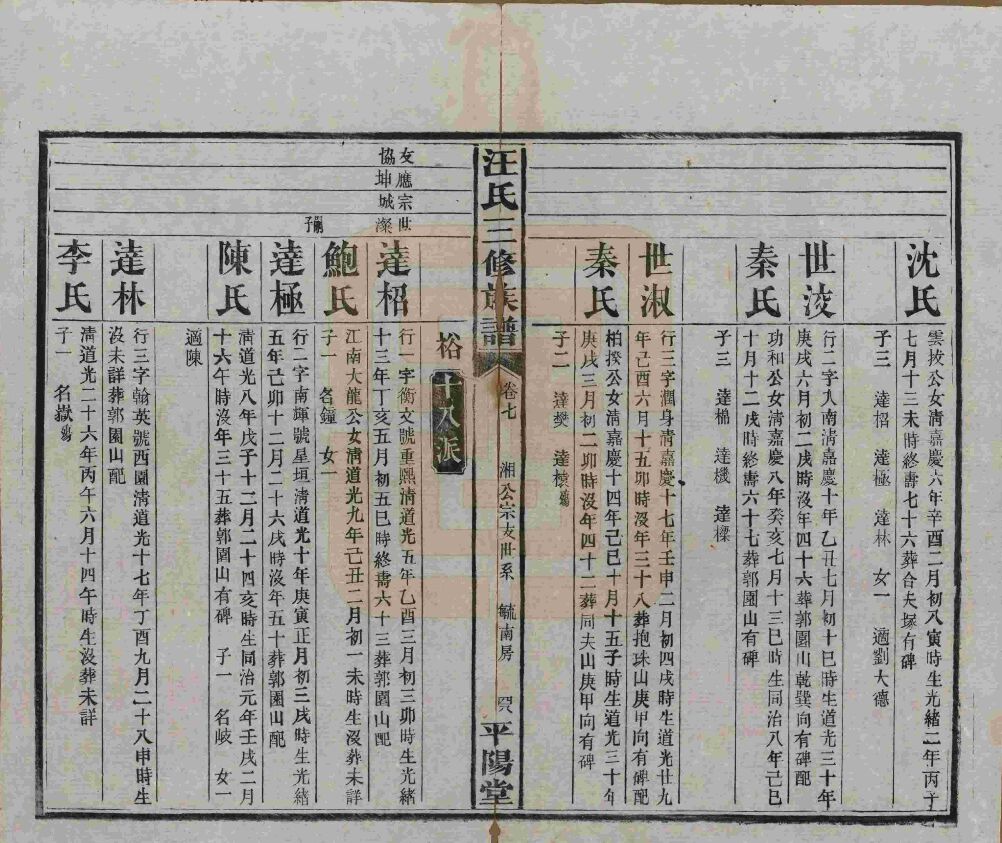 沈氏
雲坆公女清嘉慶六年辛酉二月初八寅時生光緒二年丙子
七月十三未時終壽七十六葬合夫塚有碑
子三 達柖 達極 達林 女一 適劉大德
世淩
行二字入南清嘉慶十年乙丑七月初十巳時生道光三十年
庚戌六月初二戌時沒年四十六葬郭園山乾巽向有碑配
秦氏
功和公女清嘉慶八年癸亥七月十三巳時生同治八年己巳
十月十二戌時終壽六十七葬郭園山有碑
子三 達棉 達機 達樑
世淑
行三字潤身清嘉慶十七年壬申二月初四戌時生道光廿九
年己酉六月十五卯時沒年三十八葬抱珠山庚甲向有碑配
秦氏
柏揆公女清嘉慶十四年己巳十月十五子時生道光三十年
庚戌三月初二卯時沒年四十二葬同夫山庚甲向有碑
子二 達樊 達櫰
汪氏三修族譜
卷七
湘公宗支世系 毓南房
平陽堂
裕
十八派
友應宗世
協坤城澯
達柖
行一字衡文號重熙清道光五年乙酉三月初三卯時生光緒
十三年丁亥五月初五巳時終壽六十三葬郭園山配
鮑氏
江南大龍公女清道光九年己丑二月初一未時生沒葬未詳
子一 名鐘 女一
嗣子
達極
行二字南輝號星垣清道光十年庚寅正月初三戌時生光緒
五年己卯十二月二十六戌時沒年五十葬郭園山配
陳氏
清道光八年戊子十二月二十四亥時生同治元年壬戌二月
十六午時沒年三十五葬郭園山有碑 子一 名岐 女一
適陳
達林
行三字翰英號西園清道光十七年丁酉九月二十八申時生
沒未詳葬郭園山配
李氏
清道光二十六年丙午六月十四午時生沒葬未詳
子一 名嶽